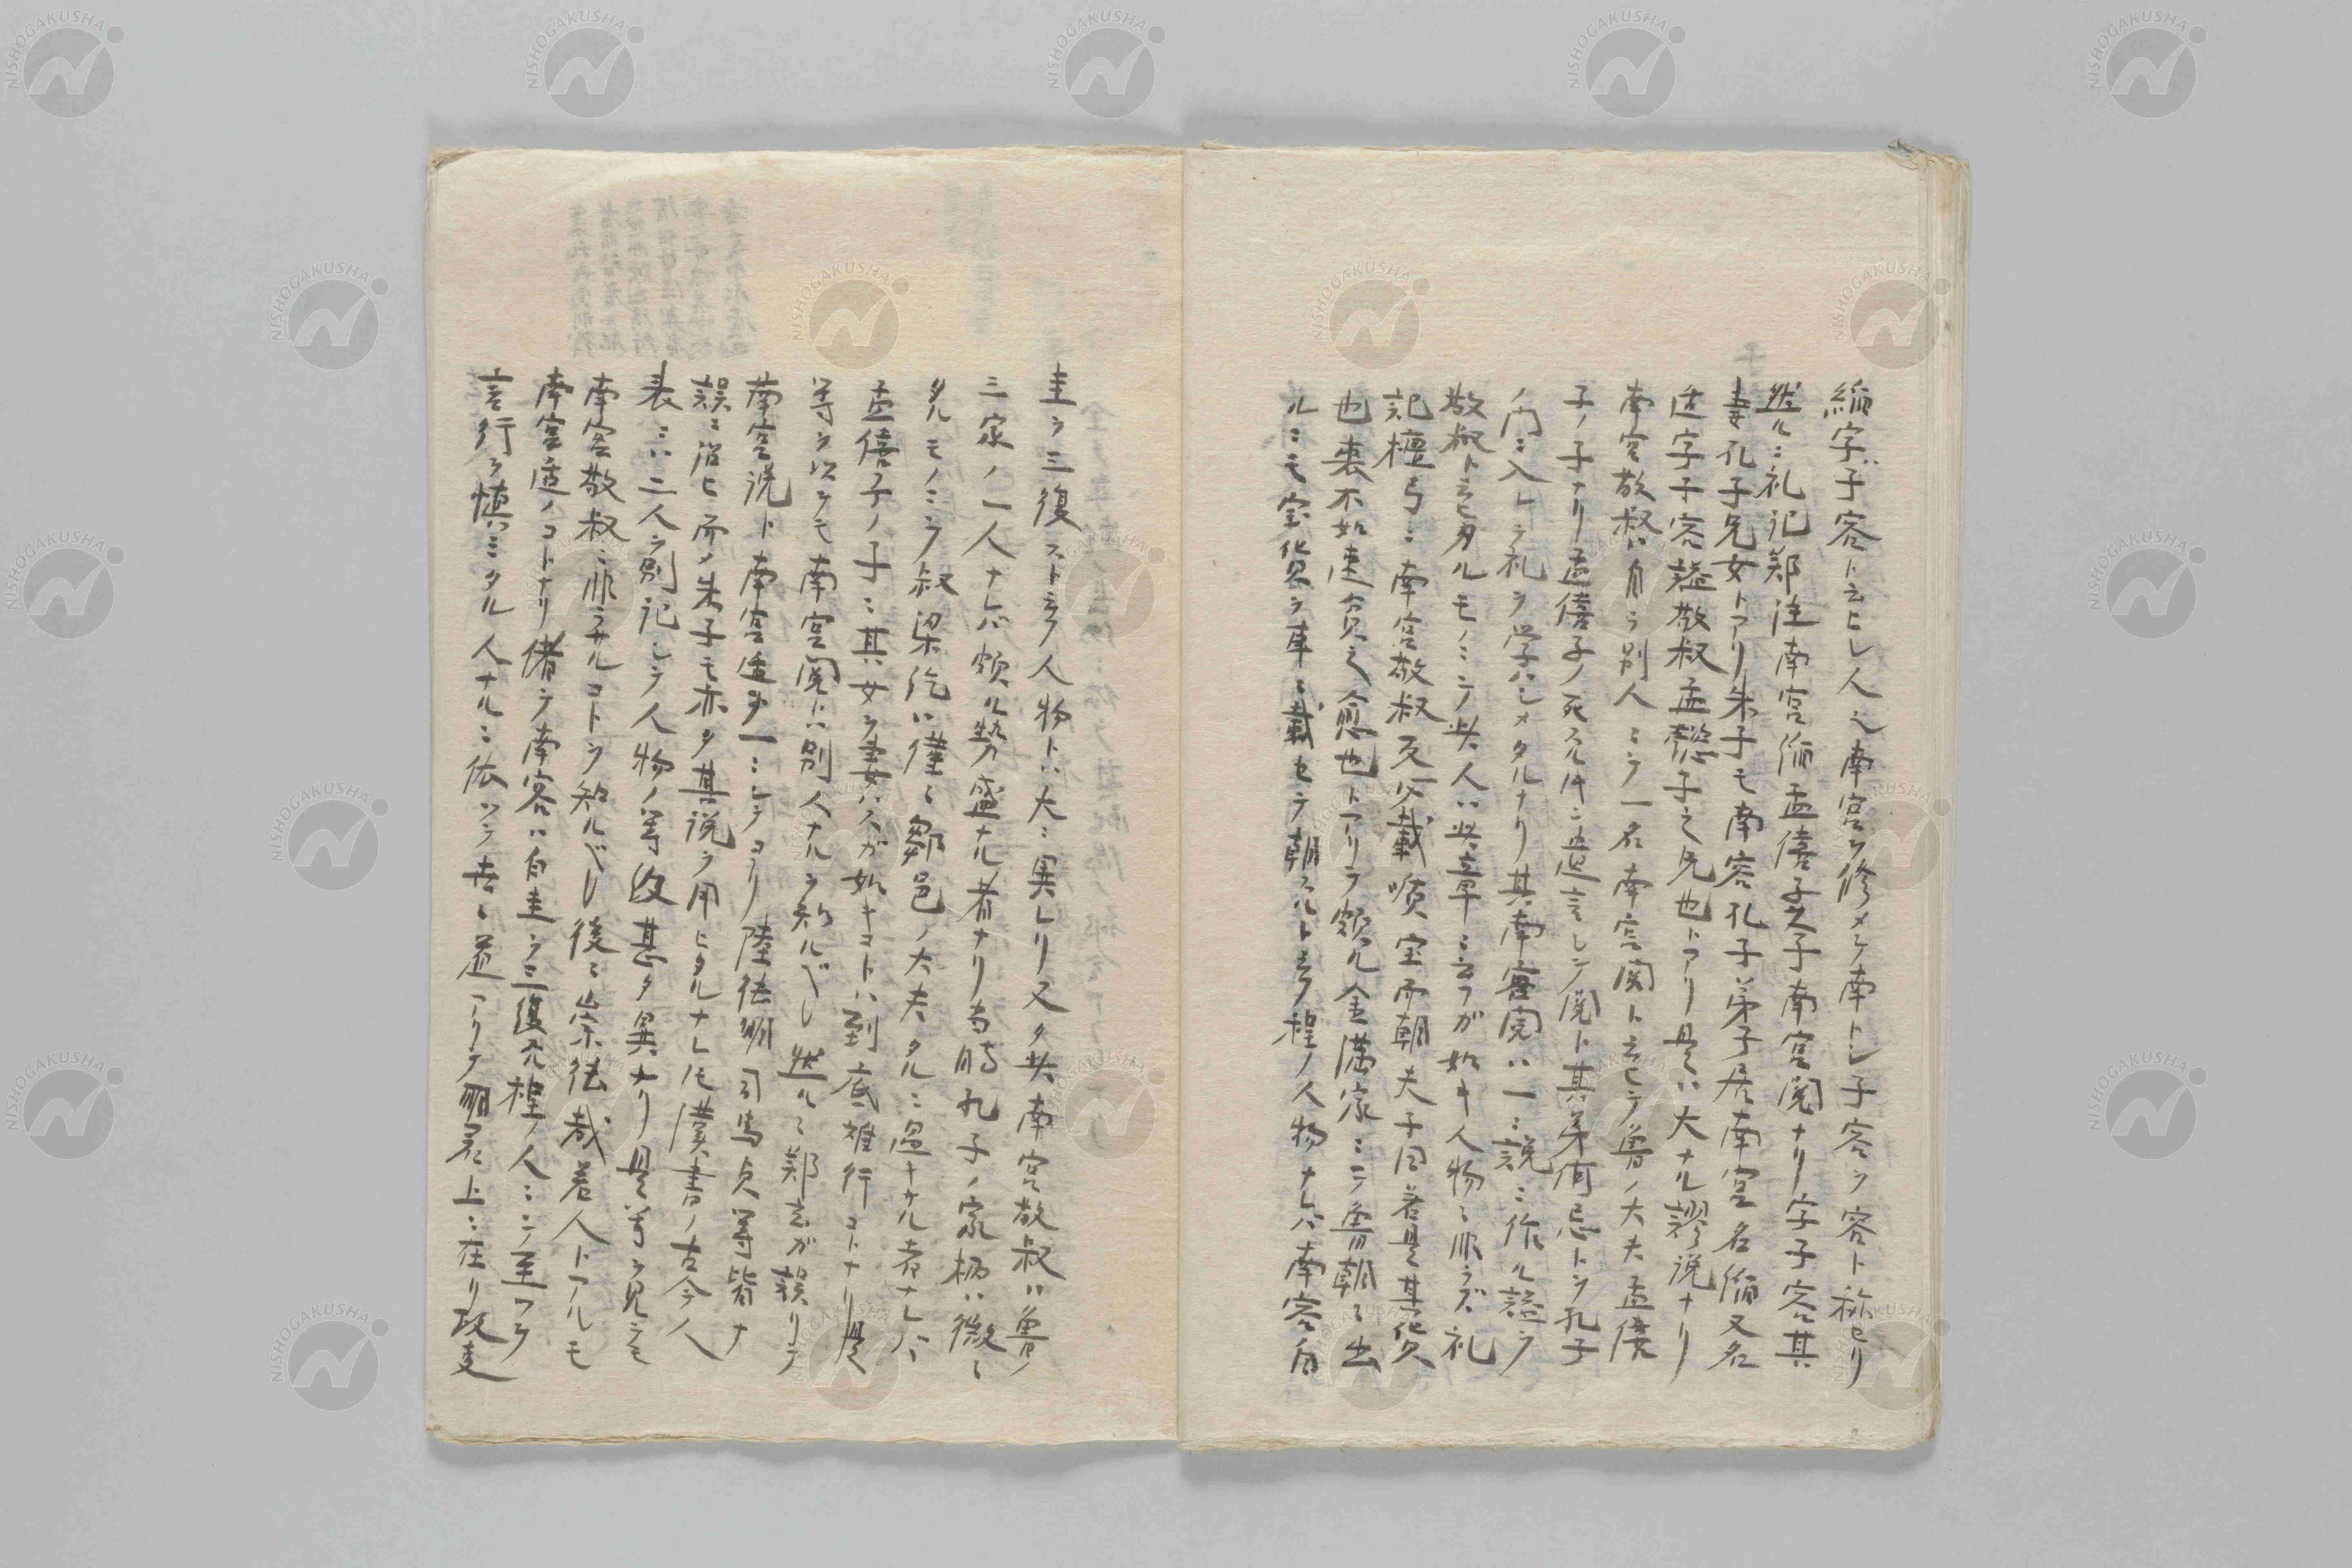 縚字ハ子容ト云ヒシ人也南宮ヲ修メテ南トシ子容ヲ容ト称セリ
然ルニ礼記鄭注南宮縚孟僖子之子南宮閲ナリ字子容其
妻孔子兄女トアリ朱子モ南容孔子弟子居南宮名縚又名
适字子容謚敬叔孟懿子之兄也トアリ是ハ大ナル謬説ナリ
南宮敬叔ハ自ラ別人ニシテ一名南宮閲ト云ヒテ魯ノ大夫孟僖
子ノ子ナリ孟僖子ノ死スル件ニ遺言シテ閲ト其弟何忌トヲ孔子
ノ門ニ入レテ礼ヲ学バシメタルナリ其南宮閲ハ一ニ説ニ作ル謚ヲ
敬叔ト云ヒタルモノニテ此人ハ此章ニ云フガ如キ人物ニ非ラズ礼
記檀弓ニ南宮敬叔反必載宝而朝夫子曰若是其貨
也喪不如速貧之愈也トアリテ頗ル金満家ニテ魯朝ニ出
ルニモ宝貨ヲ車ニ載セテ朝スルト云フ程ノ人物ナレバ南容白
圭ヲ三復スト云フ人物トハ大ニ異レリ又タ此南宮敬叔ハ魯ノ
三家ノ一人ナレバ頗ル勢盛ナル者ナリ当時孔子ノ家柄ハ微ニ
タルモノニテ叔梁紇ハ僅ニ鄹邑ノ大夫タルニ過キザル者ナレバ
孟僖子ノ子ニ其女ヲ妻ハスガ如キコトハ到底難行コトナリ是
等ヲ以テモ南宮閲トハ別人ナルヲ知ルベシ然ルニ鄭玄ガ誤リテ
南宮説ト南宮适ヲ一ニシテヨリ陸徳明司馬貞等皆ナ
誤ニ沿ヒ而メ朱子モ亦タ其説ヲ用ヒタルナレ𪜈漢書ノ古今人
表ニハ二人ヲ別記シテ人物ノ等級甚タ異ナリ是等ヲ見テモ
南容敬叔ニ非ラザルコトヲ知ルベシ後ニ崇徳哉若人トアルモ
南宮适ノコトナリ偖テ南容ハ白圭ヲ三復スル程ノ人ニシテ至ツテ
言行ヲ慎ミタル人ナルニ依ツテ世ニ道アリテ明君上ニ在リ政